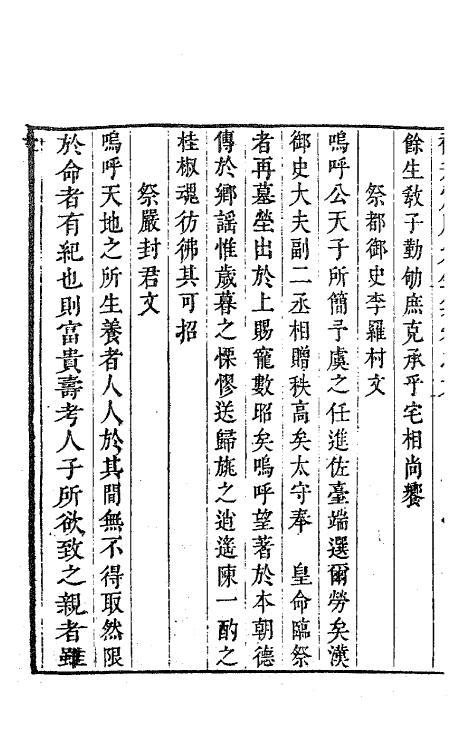 餘生敎子勤劬庶克承乎宅相尚饗
祭都御史李羅村文
嗚呼公天子所簡予虞之任進佐臺端選爾勞矣漢
御史大夫副二丞相贈秩高矣太守奉　皇命臨祭
者再墓塋出於上賜寵數昭矣嗚呼望著於本朝德
傳於鄉謠惟歲暮之慄憀送歸旐之逍遙陳一酌之
桂椒魂彷彿其可招
祭嚴封君文
嗚呼天地之所生養者人人於其間無不得取然限
於命者有紀也則富貴壽考人子所欲致之親者雖